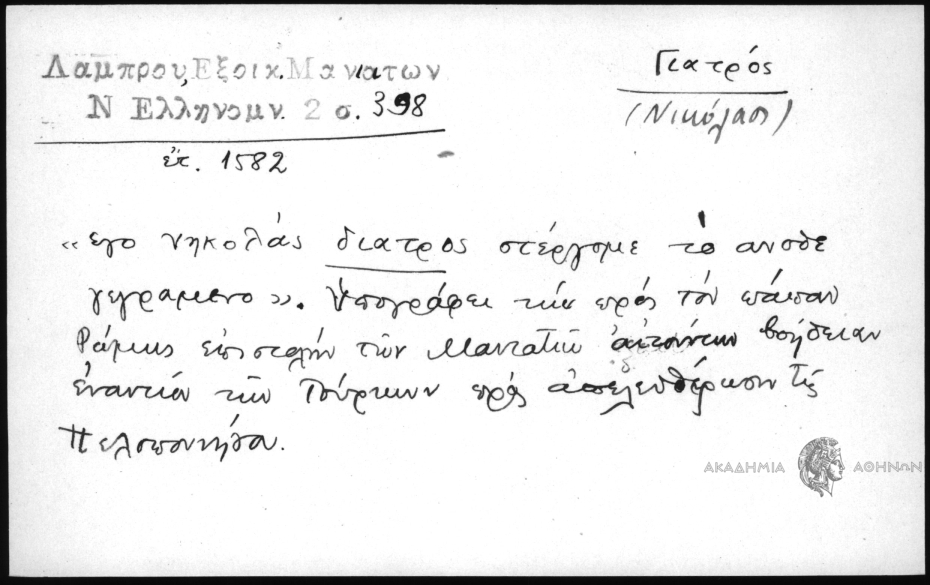 Λαμπρου, Εξοικ. Μανιατων
Ν Ελληνομν. 2 σ. 398
ἔτ. 1582
Γιατρός
(Νικόλαος)
«εγο νηκολάς διατρος στέργομε το ανοθε
γεγραμενο». Ὑπογράφει τὴν πρὸς τὸν πάπαν
Ρώμης ἐπιστολὴν τῶν Μανιατῶν αἰτούντων βοήθειαν
ἐναντίον τῶν Τούρκων πρὸς ἀπελευθέρωσιν τῆς
Πελοποννήσου.
ΑΚΑΔΗΜΙΑ ΑΘΗΝΩΝ